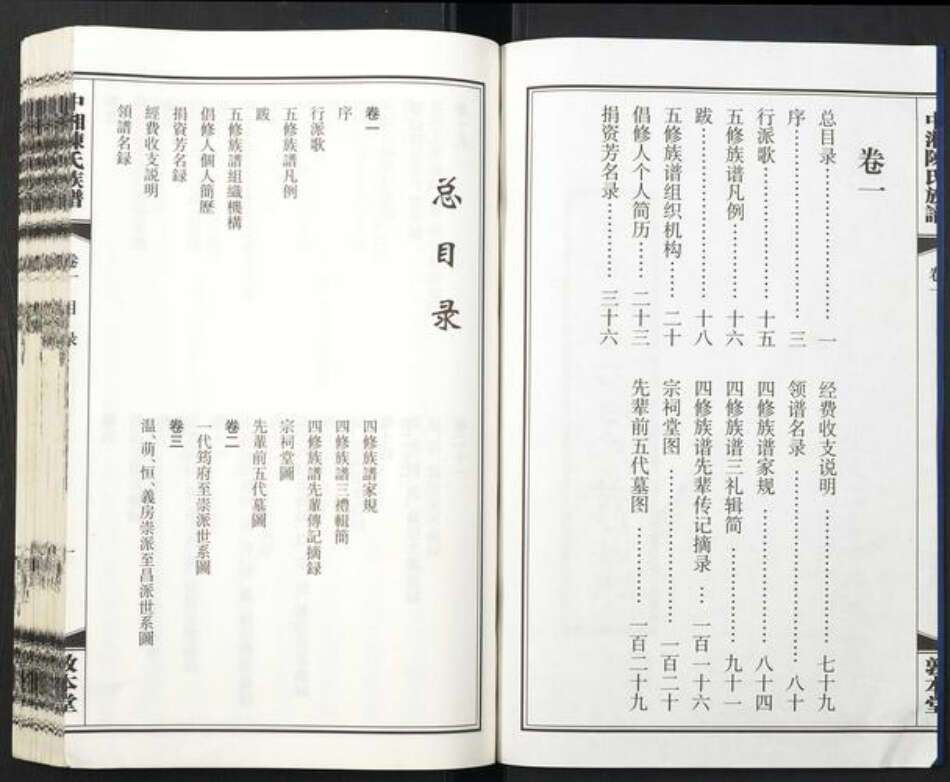 中湘陳氏族譜
卷一
卷一
总目录 一
序 三
行派歌 十五
五修族谱凡例 十六
跋 十八
五修族谱组织机构 二十
倡修人个人简历 二十三
捐资芳名录 三十六
经费收支说明 七十九
领谱名录 八十
四修族谱家规 八十四
四修族谱三礼辑简 九十一
四修族谱先辈传记摘录 一百一十六
宗祠堂图 一百二十
先辈前五代墓图 一百二十九
敦本堂
总目录
卷一
序
行派歌
五修族譜凡例
跋
五修族譜組織機構
倡修人個人簡歷
捐資芳名録
經費收支説明
領譜名録
四修族譜家規
四修族譜三禮輯簡
四修族譜先輩傳記摘録
宗祠堂圖
先輩前五代墓圖
卷二
一代筠府至崇派世系圖
卷三
温、萌、恒、義房崇派至昌派世系圖
中湘陳氏族譜
卷一
目录
一
敦本堂